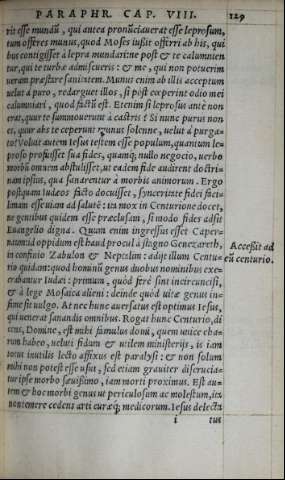 PARAPHR. CAP. VIII. 129
rit esse mundū, qui antea pronūciauerat esse leprosum,
tum offeres munus, quod Moses iussit offerri ab his, qui
bus contigisset à lepra mundari: ne post & te calumnien
tur, qui te turbæ admiscueris: & me, qui non potuerim
ueram præstare sanitatem. Munus enim ab illis acceptum
uelut à puro, redarguet illos, si pòst exceperint odio mei
calumniari, quod factū est. Etenim si leprosus antè non
eras, quur te summouerunt à castris? Si nunc purus non
es, quur abs te ceperunt munus solenne, uelut à purga-
to? Voluit autem Iesus testem esse populum, quantum le-
proso profuisset sua fides, quamq; nullo negocio, uerbo
morbū omnem abstulisset, ut eadem fide audirent doctri-
nam ipsius, qua sanarentur à morbis animorum. Ergo
postquam Iudæos facto docuisset, synceritate fidei faci-
limam esse uiam ad salutē: iā mox in Centurione docet,
ne gentibus quidem esse præclusam, si modo fides adsit
Euangelio digna. Quum enim ingressus esset Caper-
naum: id oppidum est haud procul à stagno Genezareth,
in confinio Zabulon & Neptalim: adijt illum Centu-
rio quidam: quod hominū genus duobus nominibus exe-
crabantur Iudæi: primum, quòd ferè sint incircuncisi,
& à lege Mosaica alieni: deinde quòd uitæ genus in-
fame sit uulgo. At nec hunc auersatus est optimus Iesus,
qui uenerat sanandis omnibus. Rogat hunc Centurio, di
cens, Domine, est mihi famulus domi, quem unicè cha-
rum habeo, uelut fidum & utilem ministerijs, is iam
totus inutilis lecto affixus est paralysi: & non solum
mihi non potest esse usui, sed etiam grauiter discrucia-
tur ipse morbo sæuißimo, iam morti proximus. Est au-
tem & hoc morbi genus ut periculosum ac molestum, ita
non temere cedens arti curæq; medicorum. Iesus delecta
i tus
Accessit ad
eū centurio.